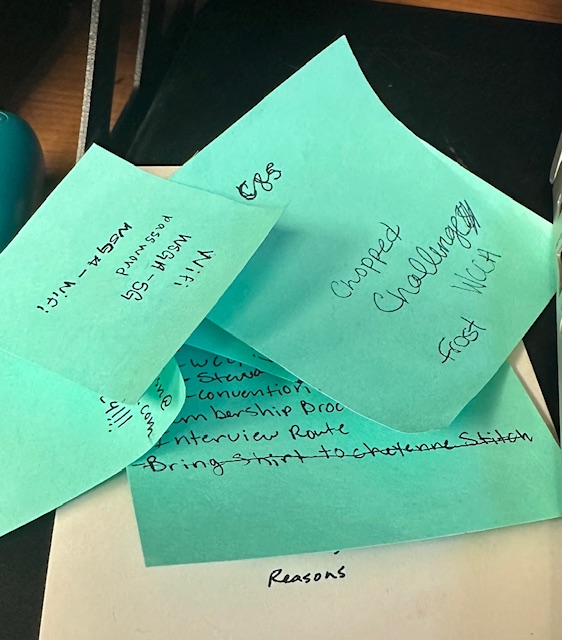 Wifi
WSGA-5G
password
WSGA-Wifi
Chopped
Challenge
Frost WCCH
- Stewa
- convention
mbership Broc
Interview Route
-Bring shirt to cheyenne Stitch
Reasons